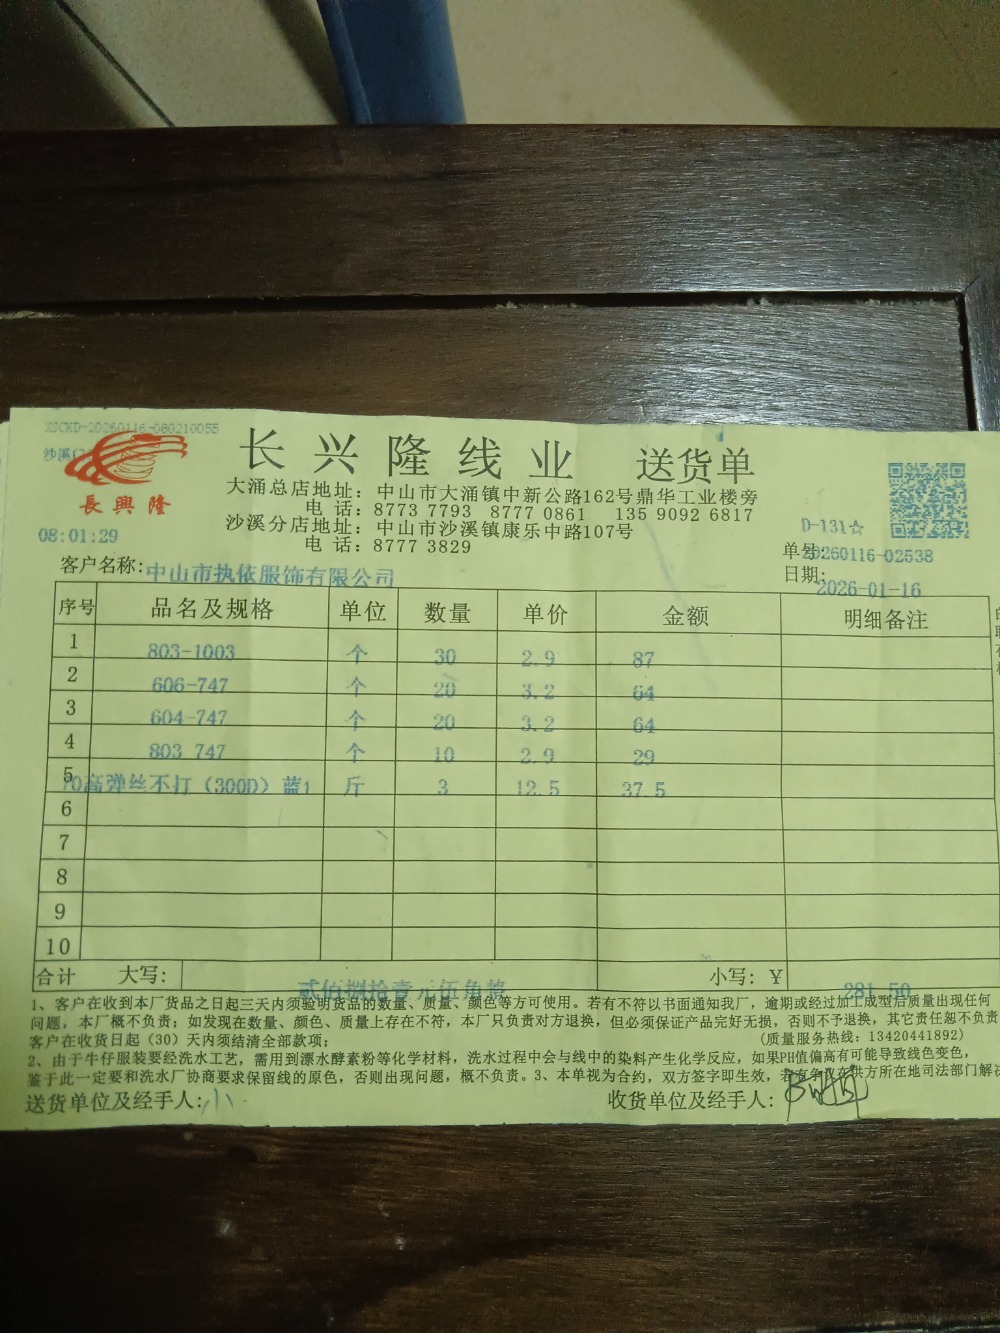 XSCKD-20260116-080210055
沙溪
長興隆
长兴隆线业 送货单
大涌总店地址：中山市大涌镇中新公路162号鼎华工业楼旁
电 话：8773 7793 8777 0861 135 9092 6817
沙溪分店地址：中山市沙溪镇康乐中路107号
电 话：8777 3829
08:01:29
D-131☆
单号: 20260116-02538
客户名称: 中山市执依服饰有限公司
日期: 2026-01-16
序号 品名及规格 单位 数量 单价 金额 明细备注
1 803-1003 个 30 2.9 87
2 606-747 个 20 3.2 64
3 604-747 个 20 3.2 64
4 803 747 个 10 2.9 29
5 70高弹丝不打（300D）蓝1 斤 3 12.5 37.5
6
7
8
9
10
合计 大写: 贰佰捌拾壹元伍角整 小写: ¥ 281.50
1、客户在收到本厂货品之日起三天内须验明货品的数量、质量、颜色等方可使用。若有不符以书面通知我厂，逾期或经过加工成型后质量出现任何
问题，本厂概不负责；如发现在数量、颜色、质量上存在不符，本厂只负责对方退换，但必须保证产品完好无损，否则不予退换，其它责任恕不负责
客户在收货日起（30）天内须结清全部款项； (质量服务热线: 13420441892)
2、由于牛仔服装要经洗水工艺，需用到漂水酵素粉等化学材料，洗水过程中会与线中的染料产生化学反应，如果PH值偏高有可能导致线色变色，
鉴于此一定要和洗水厂协商要求保留线的原色，否则出现问题，概不负责。3、本单视为合约，双方签字即生效，若有争议在供方所在地司法部门解决
送货单位及经手人: 小
收货单位及经手人: